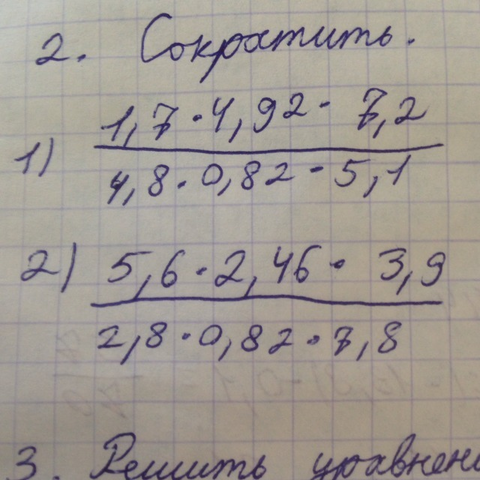 2. Сократить.
1) 1,7 · 4,92 · 7,2
4,8 · 0,82 · 5,1
2) 5,6 · 2,46 · 3,9
2,8 · 0,82 · 7,8
3. Решить уравнени